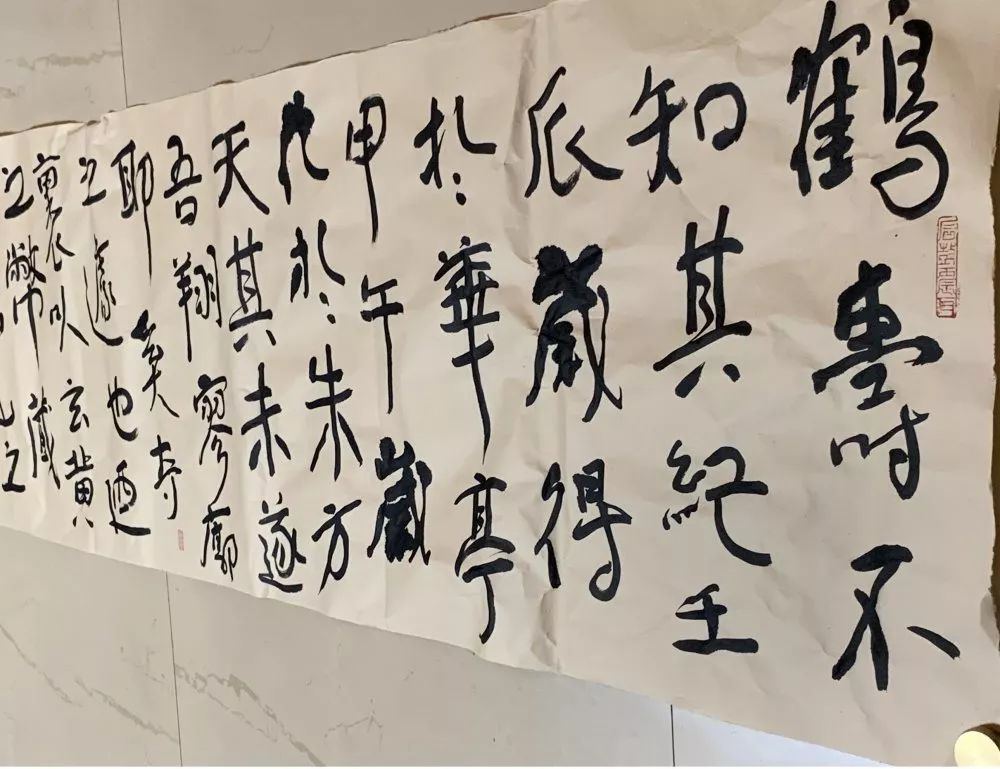 鶴壽不
知其紀壬
辰歲得
於華亭
甲午歲
化於朱方
天其未遂
吾翔寥廓
耶奚奪
之遽也迺
裹以玄黃
之幣藏